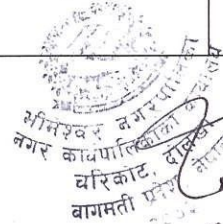 भीमेश्वर नगरपालिका
नगर कार्यपालिकाको
चरिकोट, दोलखा
बागमती प्रदेश